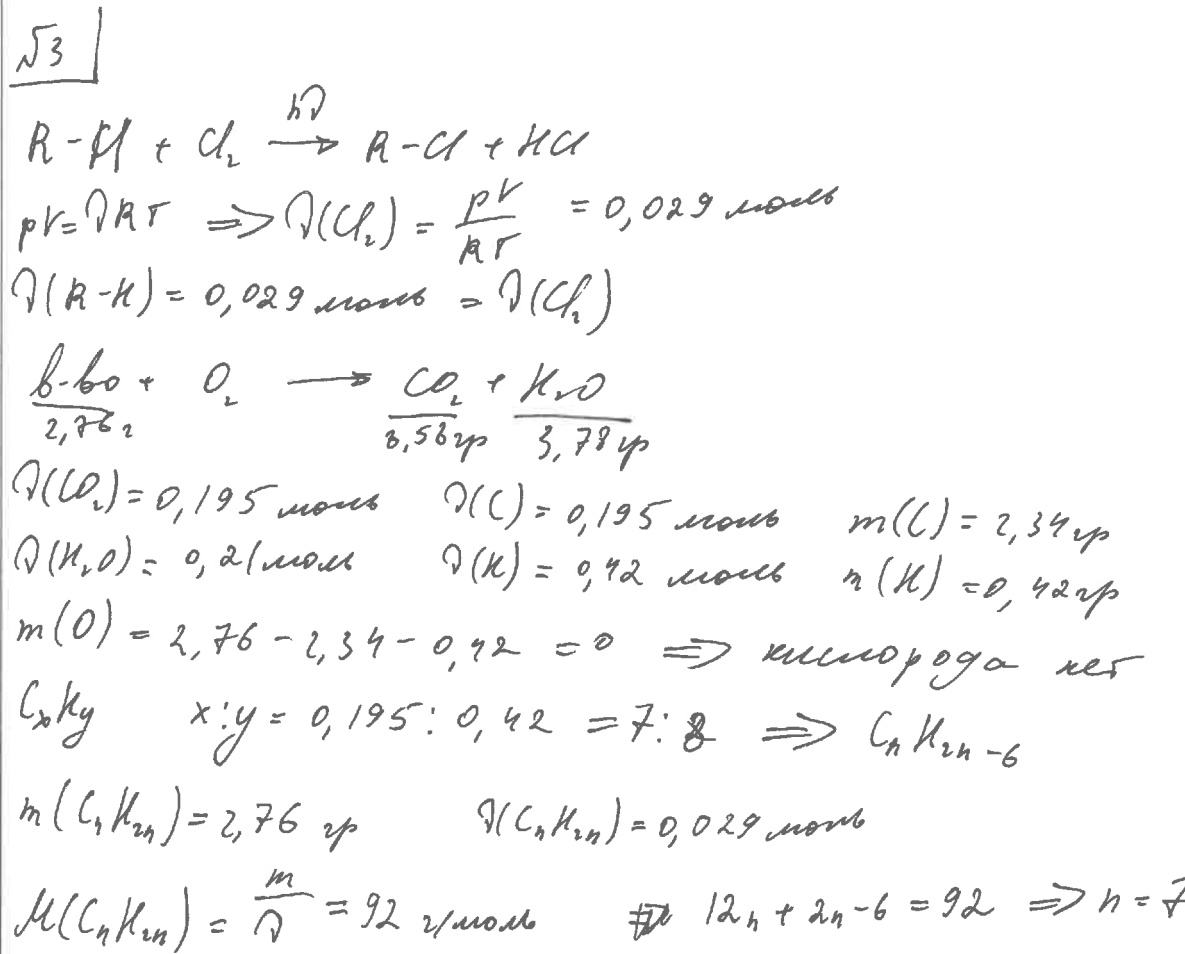 №3
R-H + Cl₂ →(hν) R-Cl + HCl
pV=νRT ⟹ ν(Cl₂) = pV/RT = 0,029 моль
ν(R-H) = 0,029 моль = ν(Cl₂)
в-во + O₂ ⟶ CO₂ + H₂O
2,76 г 8,58 гр 3,78 гр
ν(CO₂) = 0,195 моль ν(C) = 0,195 моль m(C) = 2,34 гр
ν(H₂O) = 0,21 моль ν(H) = 0,42 моль m(H) = 0,42 гр
m(O) = 2,76 - 2,34 - 0,42 = 0 ⟹ кислорода нет
CxHy x:y = 0,195 : 0,42 = 7:8 ⟹ CₙH₂ₙ₋₆
m(CₙH₂ₙ) = 2,76 гр ν(CₙH₂ₙ) = 0,029 моль
M(CₙH₂ₙ) = m/ν = 92 г/моль 12n + 2n - 6 = 92 ⟹ n = 7